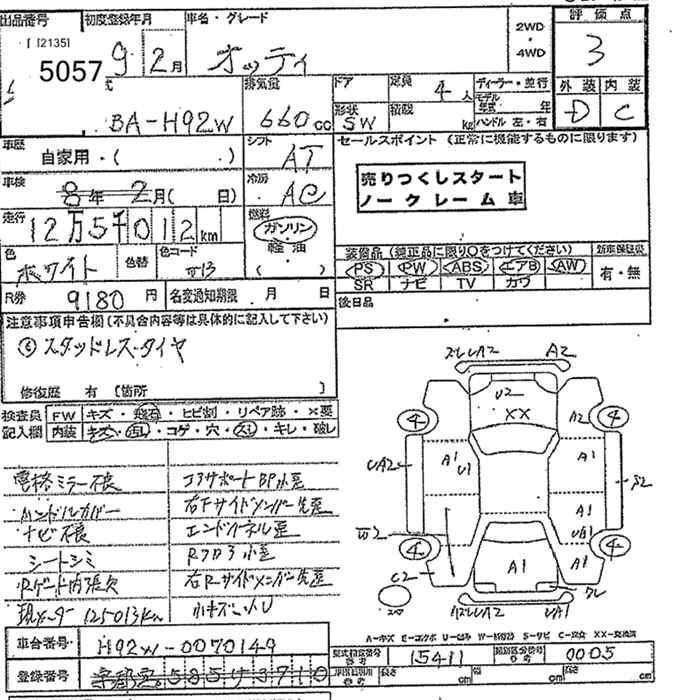 出品番号 初度登録年月 車名・グレード 2WD・4WD 評価点
[ I2135]
5057 9 2月 オッティ 3
排気量 ドア 定員 4人 ディーラー・並行 外装 内装
BA-H92W 660cc 形状 SW 積載 kg モデル年式 年 ハンドル 左・右 D C
車歴 自家用・( ) シフト AT セールスポイント (正常に機能するものに限ります)
車検 8年 2月( 日) 冷房 AC 売りつくしスタート
ノークレーム車
走行 12万5千012km 燃料 ガソリン
軽油
( )
色 ホワイト 色替 色コード 装備品 (純正品に限り○をつけてください) 新車保証書
PS PW ABS エアB AW 有・無
SR ナビ TV カワ
R券 9180円 名変通知期限 月 日 後日品
注意事項申告欄 (不具合内容等は具体的に記入して下さい)
スタッドレスタイヤ
修復歴 有 [箇所 ]
検査員 FW キズ・飛石・ヒビ割・リペア跡・×要
記入欄 内装 キズ・汚れ・コゲ・穴・スレ・キレ・破レ
電格ミラー不良 コアサポートBP小歪
ハンドルカバー 右Fサイドメンバー先歪
ナビ不良 エンドパネル歪
シートシミ Rフロア小歪
Rゲート内張欠 右Rサイドメンバー先歪
現メーター 125013km 小キズ凹U
A2
U2
XX
4 A2 4
A1 U1 A1
UA2 S2
A1
UA1
W2
4 4
C2 A1 A1
UA1
A-キズ E-エクボ U-凹み W-補修跡 S-サビ C-腐食 XX-交換済
車台番号 H92W-0070149 型式指定番号 15411 類別区分番号 0005
登録番号 長さ cm 幅 cm 高さ cm